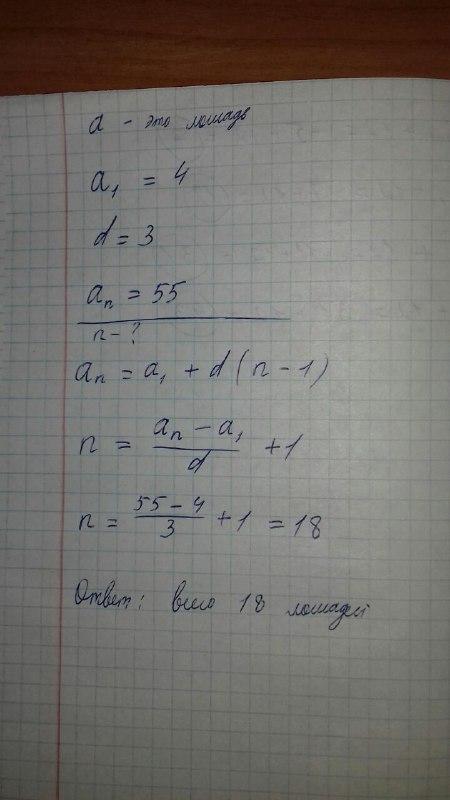 a - это лошадь
a₁ = 4
d = 3
aₙ = 55
n - ?
aₙ = a₁ + d(n - 1)
n = (aₙ - a₁)/d + 1
n = (55 - 4)/3 + 1 = 18
Ответ: всего 18 лошадей